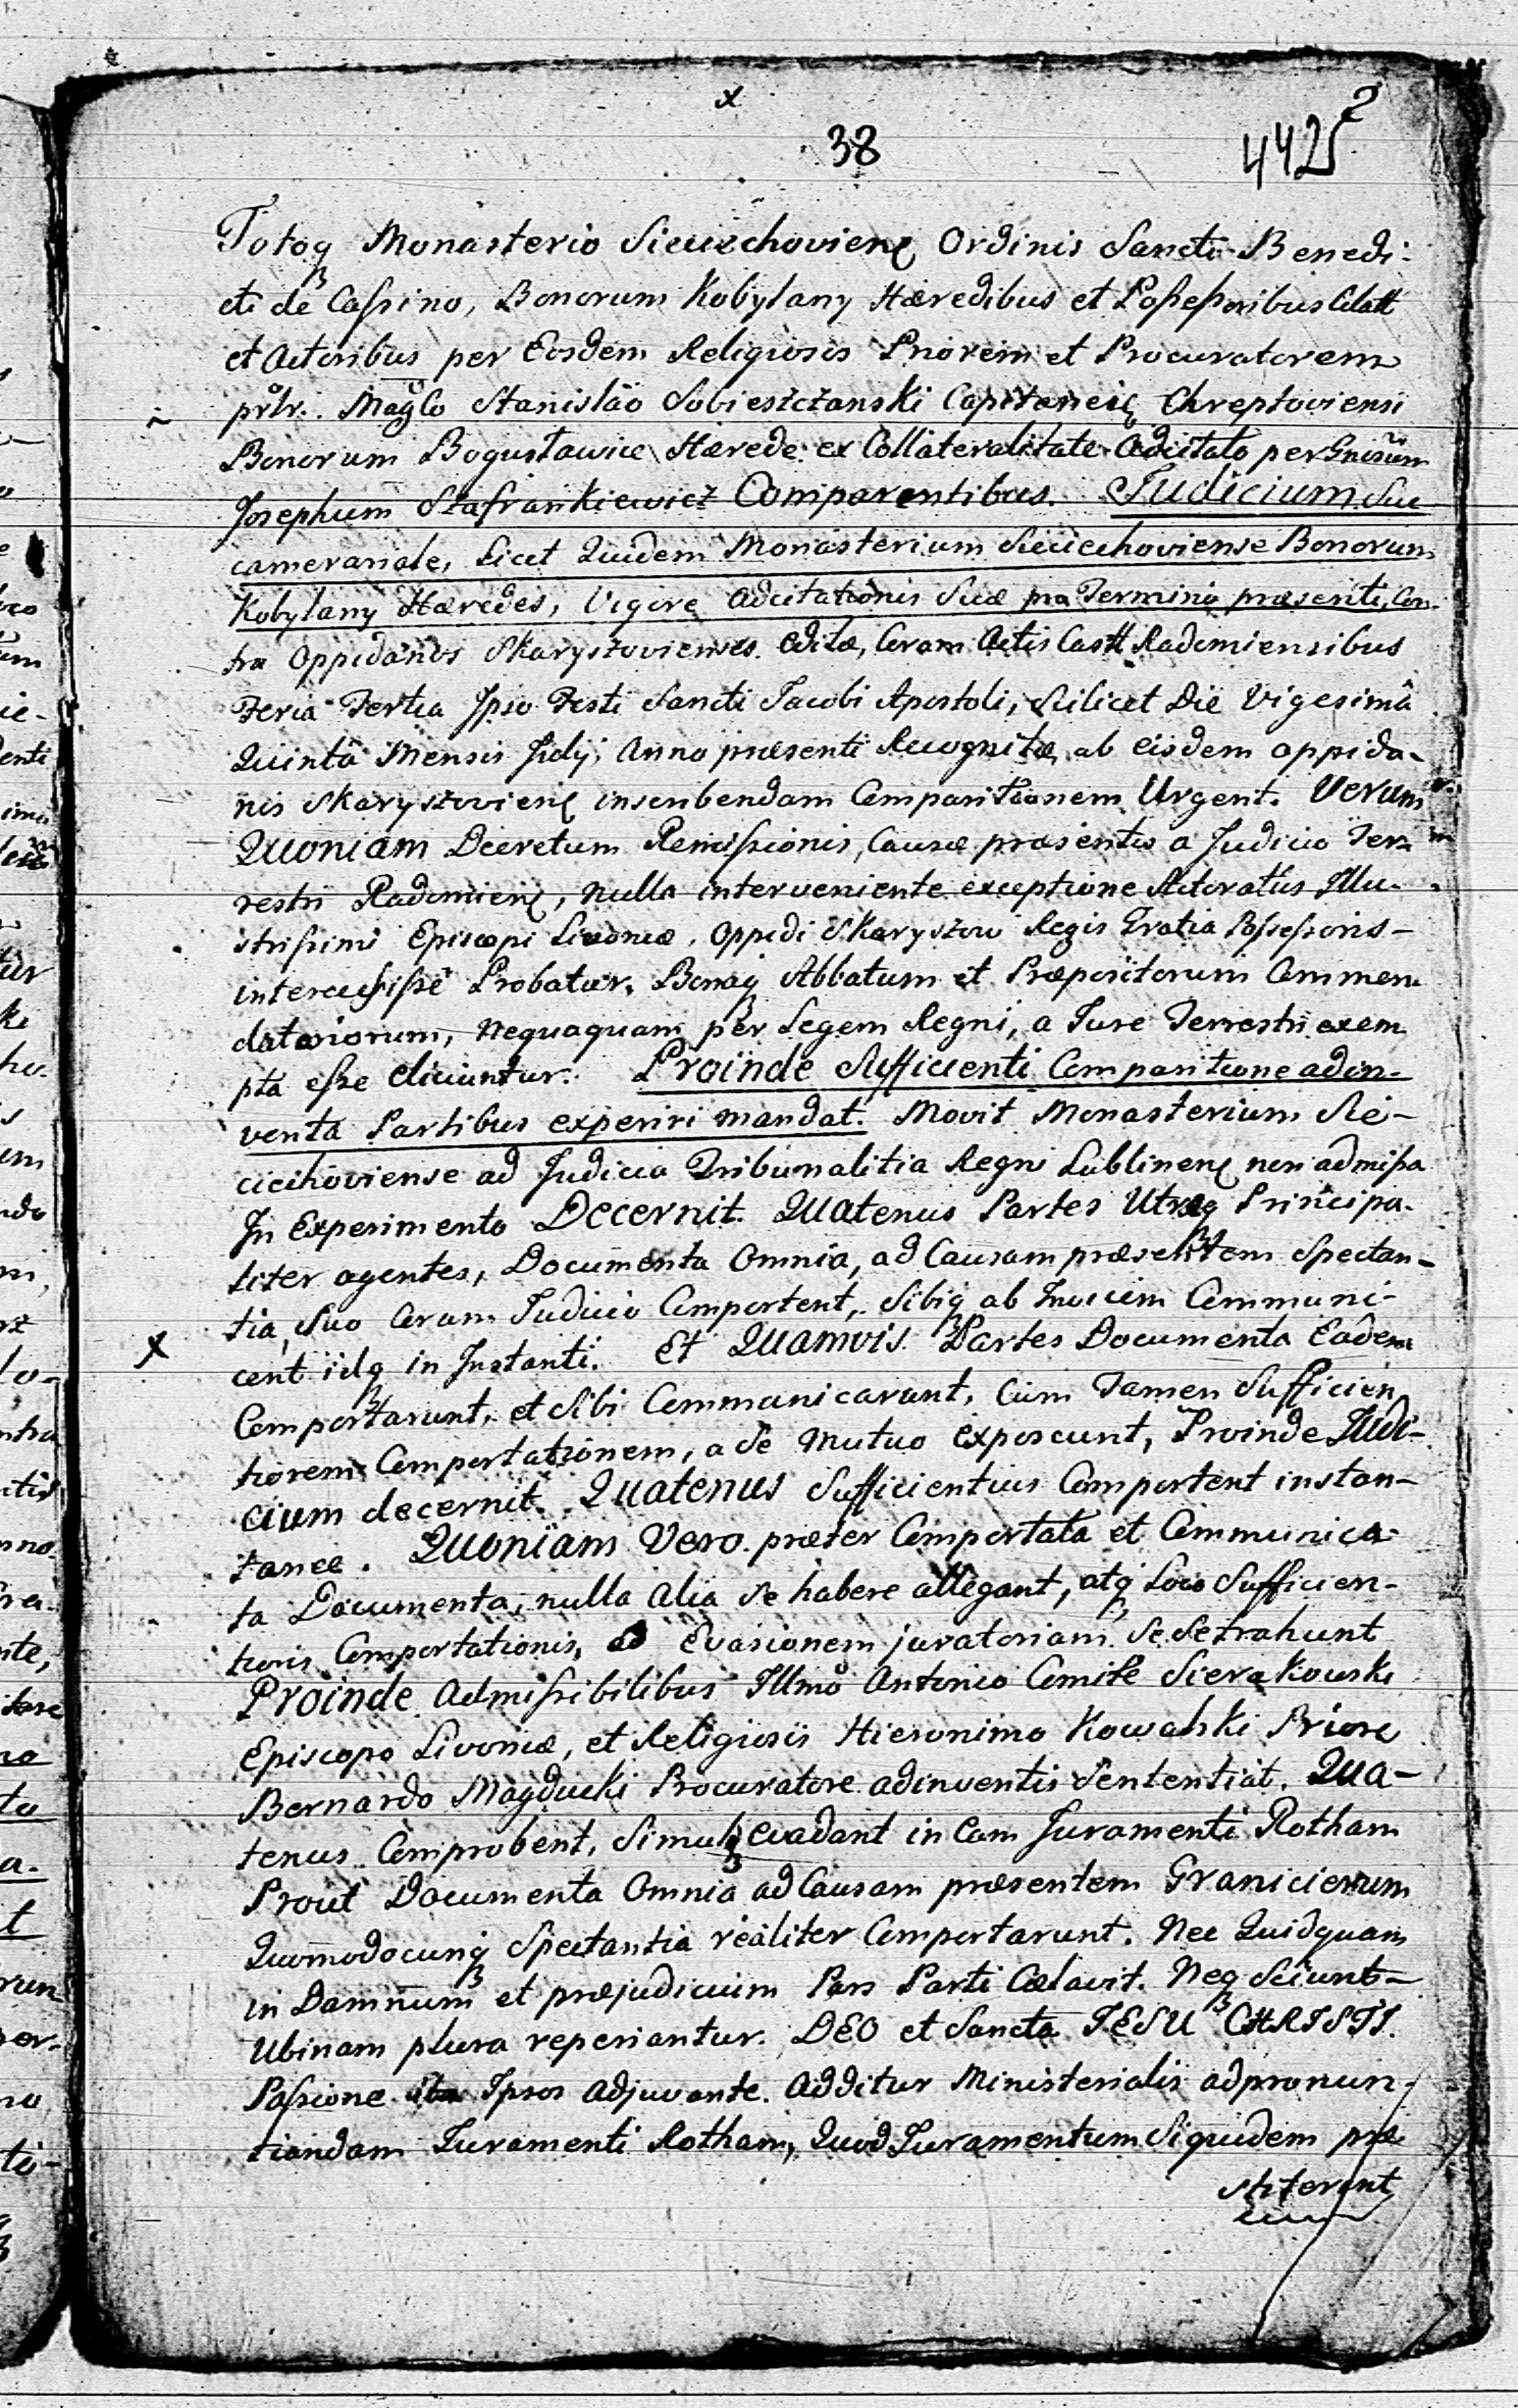 x
38
442
2
Totoq Monasterio Sieciechoviene Ordinis Sancti Benedi-
cti de Cassino, Bonorum Kobylany Hæredibus et Possessoribus Citatt
et Actoribus per Eosdem Religiosos Priorem et Procuratorem
pñtr. Magco Stanislao Sobieszczanski Capitaneić Chreptoviensi
Bonorum Bogusławice Hærede ex Collateralitate Adcitato per Gnrosum
Josephum Szafrankiewicz Comparentibus. Judicium Suc
camerariale, Licet Quidem Monasterium Sieciechoviense Bonorum
Kobylany Hæredes, Vigore Adcitationis Suæ pro Termino præsenti, Con-
tra Oppidanos Skaryszovienses editæ, Coram Actis Castt Radomiensibus
Feria Tertia Ipso Festi Sancti Jacobi Apostoli, Scilicet Die Vigesimâ
Quintâ Mensis Julij, Anno præsenti Recognitæ, ab eisdem oppida-
nis Skaryszoviene inscribendam Comparitionem Urgent. Verum
Quoniam Decretum Remissionis, Causæ præsentis a Judicio Ter-
restri Radomiene, nulla interveniente exceptione Actoratûs Illu-
strissimi Episcopi Livoniæ, Oppidi Skaryszow Regis Gratia Possessoris-
intercessisse Probatur, Bonaq Abbatum et Præpositorum Commen
datariorum, nequaquam per Legem Regni, a Jure Terrestri exem
pta esse eliciuntur. Proinde Sufficienti Comparitione adin-
venta Partibus experiri mandat. Movit Monasterium Sie-
ciechoviense ad Judicia Tribunalitia Regni Lublinene non admissa
In Experimento Decernit. Quatenus Partes Utræq Principa-
liter agentes, Documenta Omnia, ad Causam præsentem Spectan-
tia, Suo Coram Judicio Comportent, Sibiq ab Invicem Communi-
x
cent idq in Instanti. Et Quamvis Partes Documenta Eadem
Comportarunt, et Sibi Communicarunt, Cum Tamen Sufficien
tiorem Comportationem, a Se Mutuo exposcunt, Proinde Judi-
cium decernit. Quatenus Sufficientius Comportent instan-
tanee. Quoniam Vero præter Comportata et Communica-
ta Documenta, nulla alia se habere allegant, atq Loco Sufficien-
tioris Comportationis, ad Evasionem juratoriam Se Setrahunt
Proinde Admissibilibus Illmo Antonio Comite Sierakowski
Episcopo Livoniæ, et Religiosis Hieronimo Kowalski Priore
Bernardo Magducki Procuratore adinventis Sententiat. Qua-
tenus Comprobent, Simulq evadant in Eam Juramenti Rotham
Prout Documenta Omnia ad Causam præsentem Granicierum
Quomodocunq Spectantia realiter Comportarunt. Nec Quidquam
in Damnum et præjudicium Pars Parti Cælavit. Neq Sciunt-
Ubinam plura reperiantur. DEO et Sancta JESU CHRISTI
Passione Ipsos Adjuvante. Additur Ministerialis ad pronun-
tiandam Juramenti Rotham, Quod Juramentum Siquidem præ
stiterunt